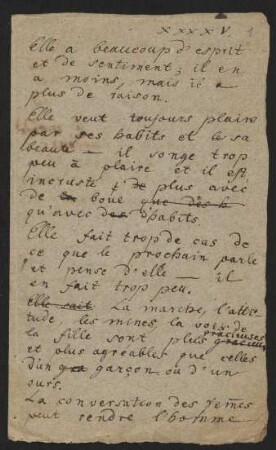 XXXXV. 1
Elle a beaucoup d'esprit
et de sentiment; il en
a moins, mais il a
plus de raison.
Elle veut toujours plaire
par ses habits et les sa
beaute — il songe trop
peu a plaire et il est
incruste de plus avec
de la boue que des h
qu'avec des habits.
Elle fait trop de cas de
ce que le prochain parle
et pense d'elle — il
en fait trop peu.
Elle sait La marche, l'atti
tude les mines la voix de
la fille sont plus gracieuses
et plus agreables que celles
d'un garçon ou d'un
ours.
La conversation des femes
peut rendre l'homme